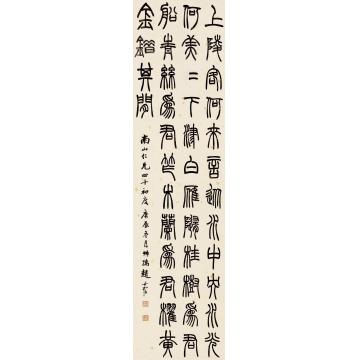 上陵客何來言從水中央水光
何美二下津白雁隨桂樹為君
船青絲為君笮木蘭為君櫂黃
金錯其間
南山仁兄四十初度 庚辰冬月 叔孺趙